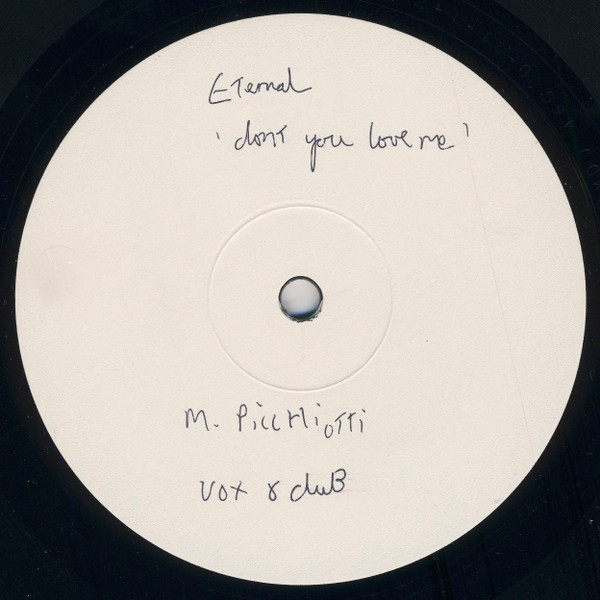 Eternal
'dont you love me'
M. Picchiotti
vox & duB